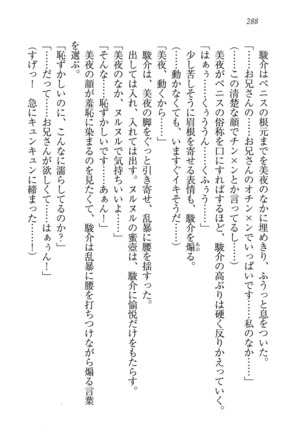 288
　駿介はペニスの根元までを美夜のなかに埋めきり、ふうっと息をついた。
「……お兄さんのオチン×ンでいっぱいです……私のなか……」
（……この清楚な顔でチン×ンとか言ってるし……）
　美夜がペニスの俗称を口にすればするほど、駿介の高ぶりは硬く反りかえっていく。
「はぁぅ……くぅううん……くふぅう……」
　少し苦しそうに眉根を寄せる表情も、駿介を煽る。
（……動かなくても、いますぐイキそうだ……）
「美夜、動くから……」
　駿介は、美夜の脚をぐっと引き寄せ、乱暴に腰を揺すった。
　出しては入れ、入れては出す。ヌルヌルの蜜壺は、駿介に愉悦だけをもたらす。
「美夜のなか、ヌルヌルで気持ちいいよ」
「そんな……恥ずかしいです……あぁん！」
　美夜の顔が羞恥に染まるのを見たくて、駿介は乱暴に腰を打ちつけながら煽る言葉
を選ぶ。
「恥ずかしいのに、こんなに濡らしてるのか？」
「……だって……お兄さんが欲しくて……はぁぅん！」
（すげっ！　急にキュンキュンに締まった……！）